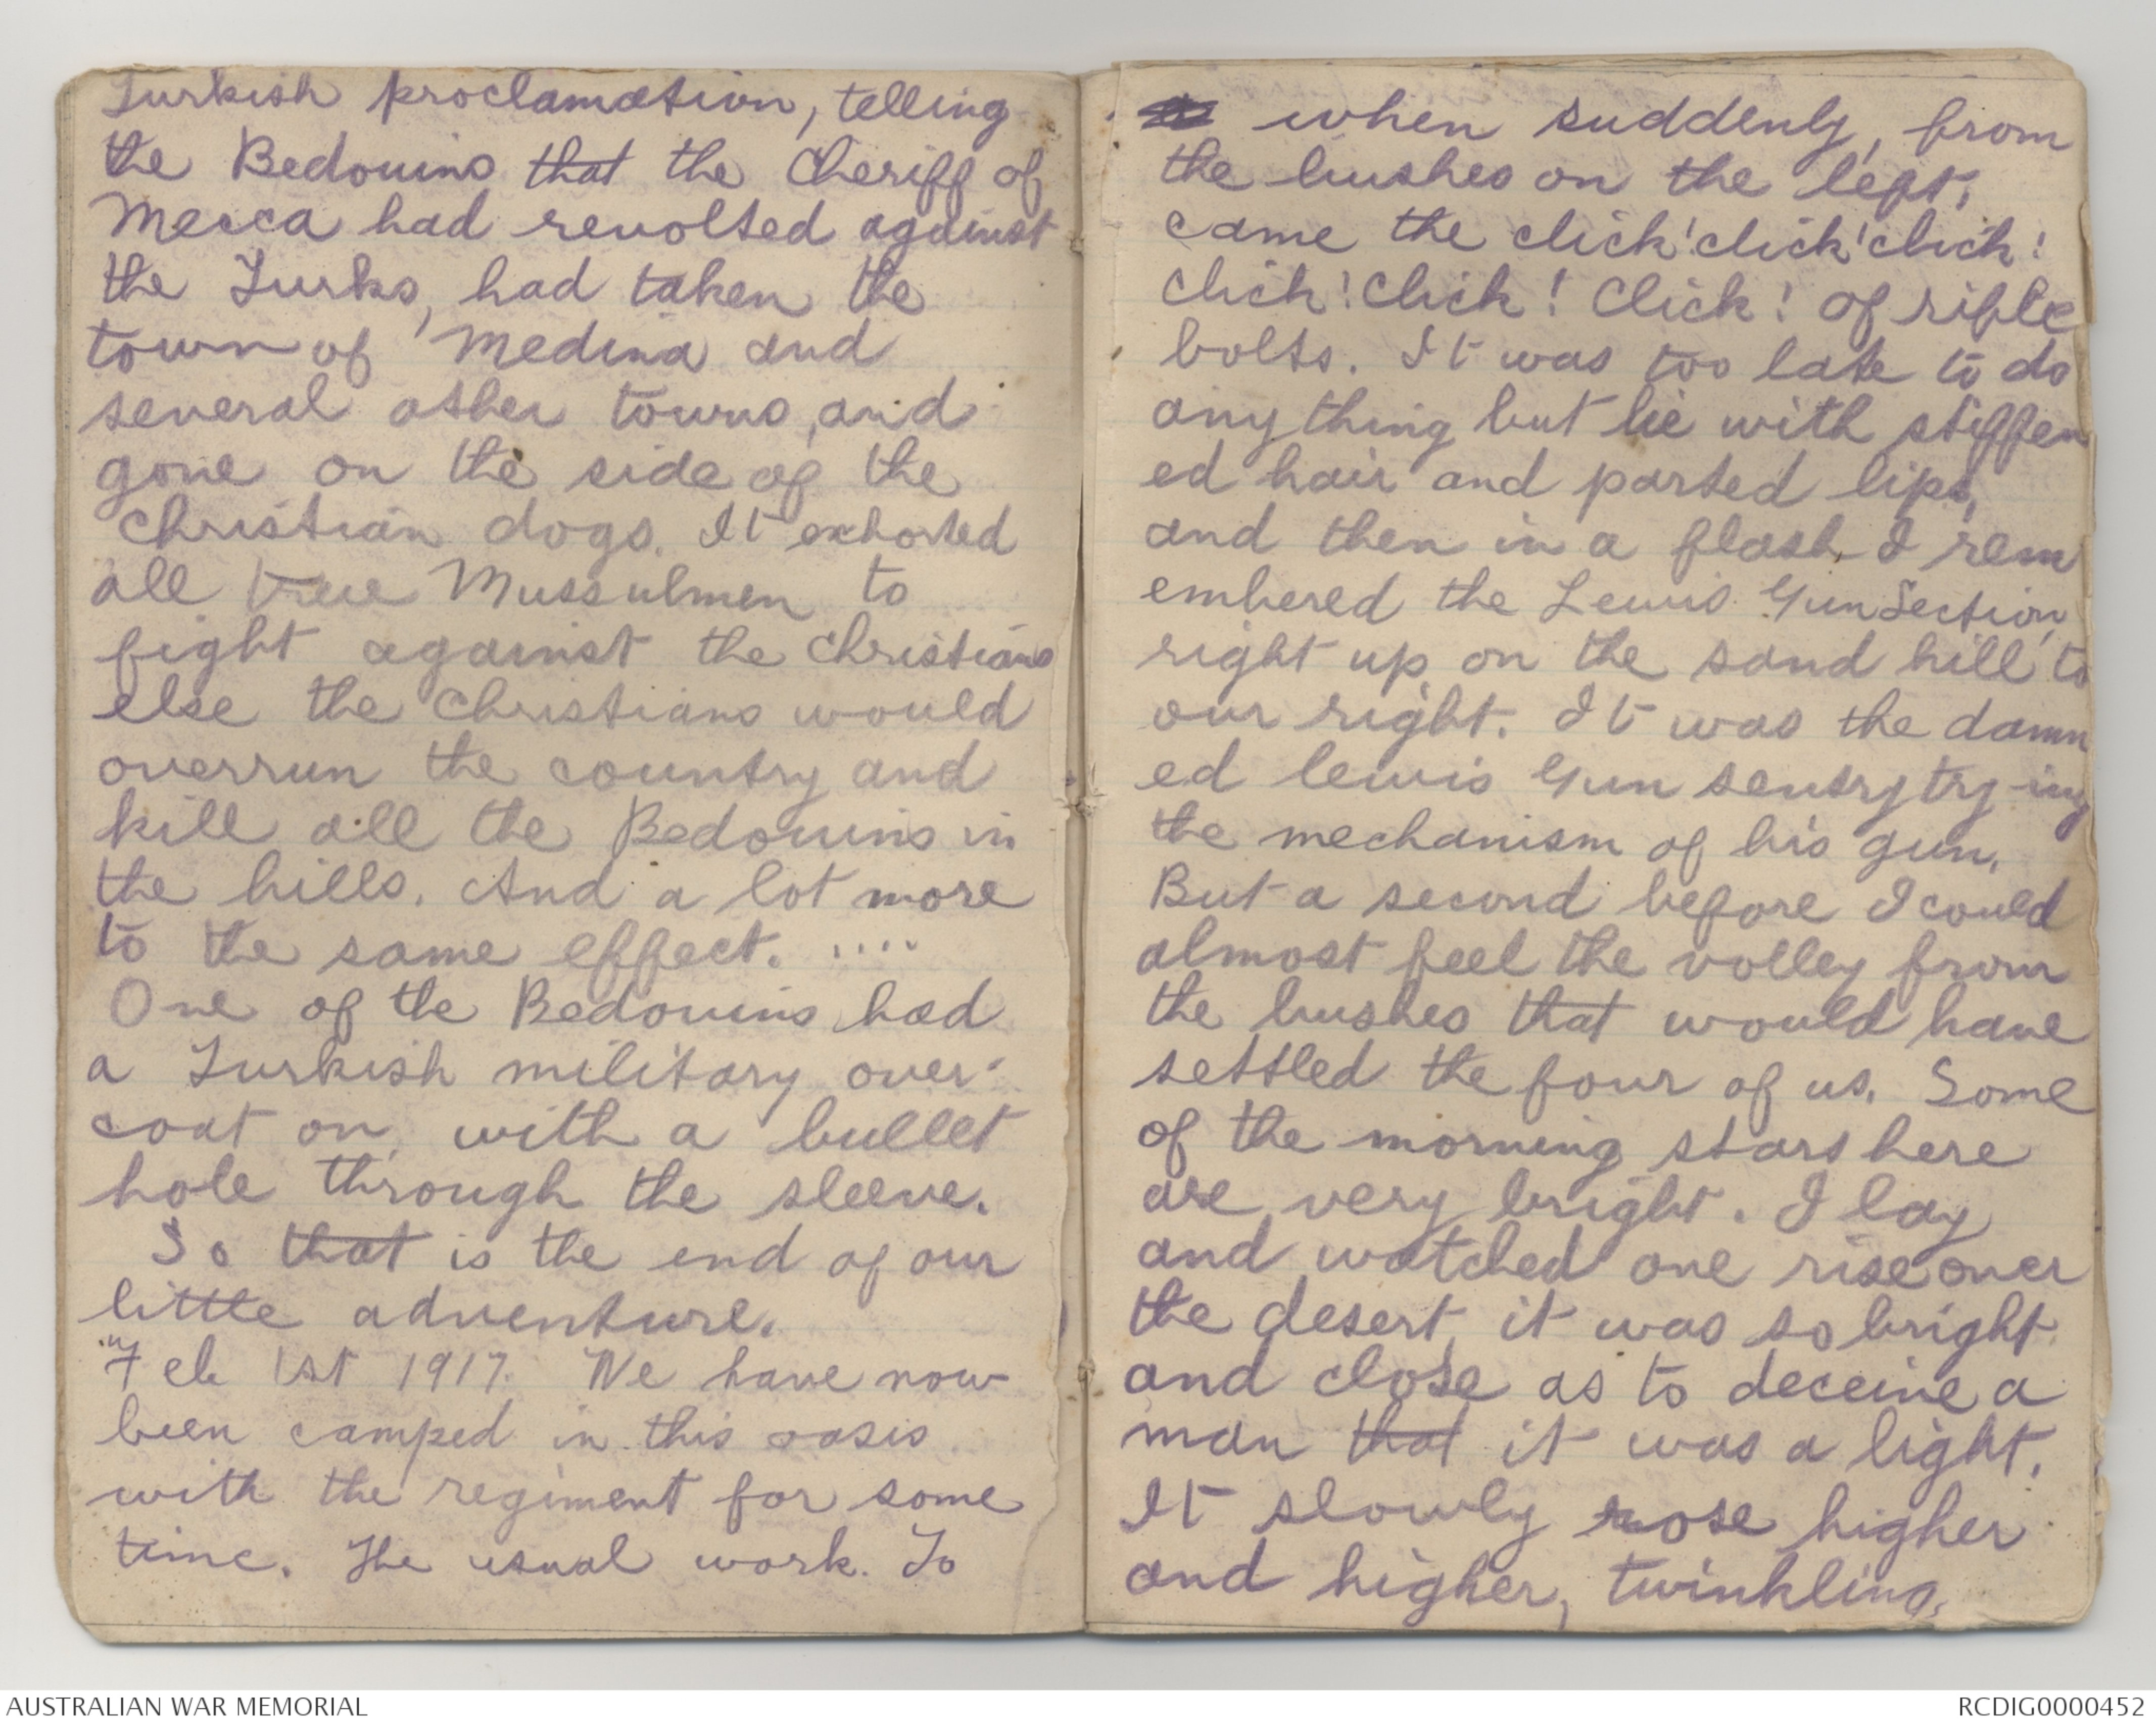 Turkish proclamation, telling
the Bedouins that the Cheriff of
Mecca had revolted against
the Turks, had taken the
town of Medina and
several other towns, and
gone on the side of the
Christian dogs. It exhorted
all true Mussulmen to
fight against the Christians
else the Christians would
overrun the country and
kill all the Bedouins in
the hills. And a lot more
to the same effect. ....
One of the Bedouins had
a Turkish military over-
coat on, with a bullet
hole through the sleeve.
So that is the end of our
little adventure.
"Feb 1st 1917. We have now
been camped in this oasis
with the regiment for some
time. The usual work. To
when suddenly, from
the bushes on the left,
came the click! click! click!
click! click! Click! of rifle
bolts. It was too late to do
any thing but lie with stiffen
ed hair and parted lips,
and then in a flash I rem
embered the Lewis Gun Section,
right up on the sand hill to
our right. It was the damn
ed lewis Gun sentry try-ing
the mechanism of his gun.
But a second before I could
almost feel the volley from
the bushes that would have
settled the four of us. Some
of the morning stars here
are very bright. I lay
and watched one rise over
the desert, it was so bright
and close as to deceive a
man that it was a light.
It slowly rose higher
and higher, twinkling,
AUSTRALIAN WAR MEMORIAL
RCDIG0000452